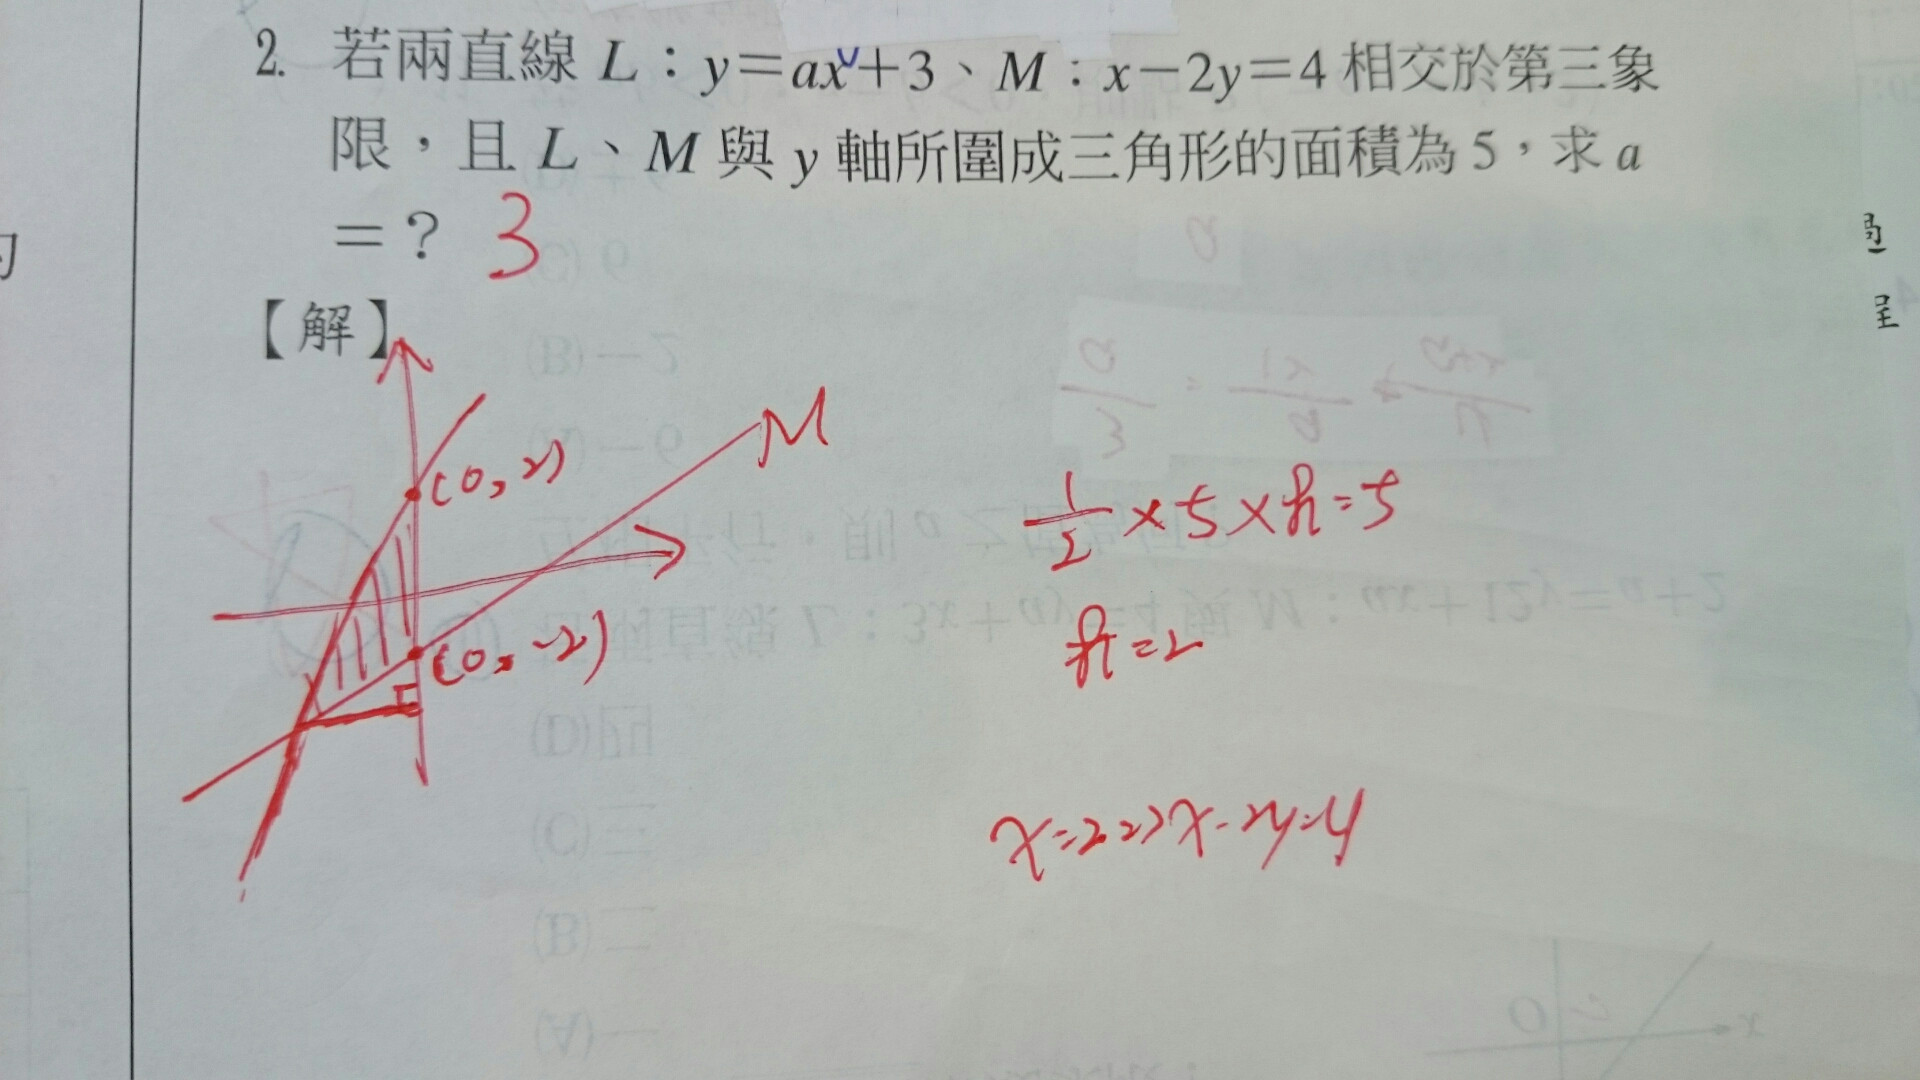 2. 若兩直線 L：y＝ax＋3、M：x－2y＝4 相交於第三象
限，且 L、M 與 y 軸所圍成三角形的面積為 5，求 a
＝？ 3
【解】
M
(0, 2)
(0, -2)
1/2 × 5 × h = 5
h = 2
x=2 => x-2y=4